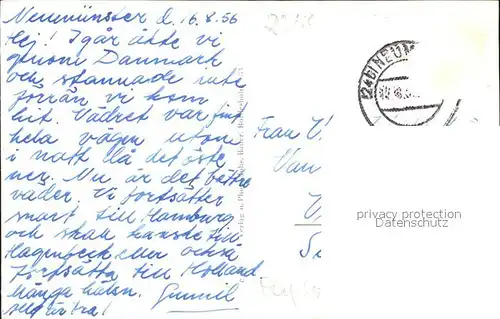 Neumünster d. 16.8.56
Hej! Igår åkte vi
genom Danmark
och stannade inte
förrän vi kom
hit. Vädret var fint
hela vägen utom
i natt då det öste
ner. Nu är det bättre
väder. Vi fortsätter
snart till Hamburg
och skall kanske till
Hagenbeck eller också
fortsätta till Holland.
Många hälsn. Gunnil
(24b) NEUM
Frau
privacy protection
Datenschutz